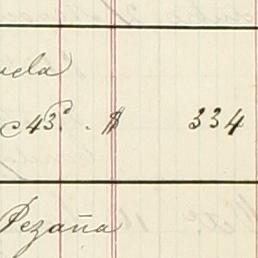 uela
c 43. $ 334
Pezaña